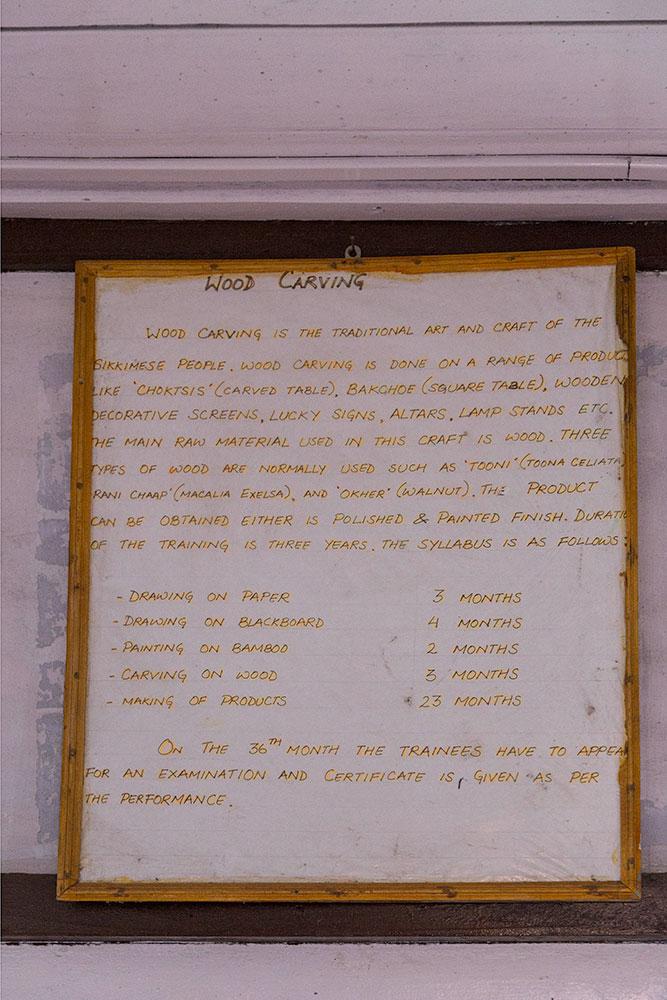 WOOD CARVING
WOOD CARVING IS THE TRADITIONAL ART AND CRAFT OF THE
SIKKIMESE PEOPLE. WOOD CARVING IS DONE ON A RANGE OF PRODUC
LIKE 'CHOKTSIS' (CARVED TABLE), BAKCHOE (SQUARE TABLE), WOODEN
DECORATIVE SCREENS, LUCKY SIGNS, ALTARS, LAMP STANDS ETC.
THE MAIN RAW MATERIAL USED IN THIS CRAFT IS WOOD. THREE
TYPES OF WOOD ARE NORMALLY USED SUCH AS 'TOONI' (TOONA CELIATA)
RANI CHAAP' (MACALIA EXELSA), AND 'OKHER' (WALNUT). THE PRODUCT
CAN BE OBTAINED EITHER IS POLISHED & PAINTED FINISH. DURATI
OF THE TRAINING IS THREE YEARS. THE SYLLABUS IS AS FOLLOWS:
- DRAWING ON PAPER 3 MONTHS
- DRAWING ON BLACKBOARD 4 MONTHS
- PAINTING ON BAMBOO 2 MONTHS
- CARVING ON WOOD 3 MONTHS
- MAKING OF PRODUCTS 23 MONTHS
ON THE 36TH MONTH THE TRAINEES HAVE TO APPEA
FOR AN EXAMINATION AND CERTIFICATE IS, GIVEN AS PER
THE PERFORMANCE.